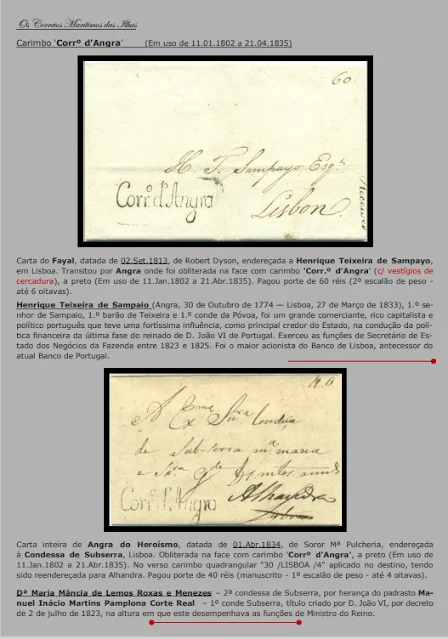 Os Correios Marítimos das Ilhas
Carimbo 'Corrº d'Angra' (Em uso de 11.01.1802 a 21.04.1835)
60.
H. T. Sampayo Esqr.
Corr.º d'Angra
Lisbon.
Carta do Fayal, datada de 02.Set.1813, de Robert Dyson, endereçada a Henrique Teixeira de Sampayo,
em Lisboa. Transitou por Angra onde foi obliterada na face com carimbo 'Corr.º d'Angra' (c/ vestígios de
cercadura), a preto (Em uso de 11.Jan.1802 a 21.Abr.1835). Pagou porte de 60 réis (2º escalão de peso -
até 6 oitavas).
Henrique Teixeira de Sampaio (Angra, 30 de Outubro de 1774 — Lisboa, 27 de Março de 1833), 1.º se-
nhor de Sampaio, 1.º barão de Teixeira e 1.º conde da Póvoa, foi um grande comerciante, rico capitalista e
político português que teve uma fortíssima influência, como principal credor do Estado, na condução da polí-
tica financeira da última fase do reinado de D. João VI de Portugal. Exerceu as funções de Secretário de Es-
tado dos Negócios da Fazenda entre 1823 e 1825. Foi o maior acionista do Banco de Lisboa, antecessor do
atual Banco de Portugal.
de Sub-serra
Corr.º d'Angra
Alhandra
Carta inteira de Angra do Heroísmo, datada de 01.Abr.1834, de Soror Mª Pulcheria, endereçada
à Condessa de Subserra, Lisboa. Obliterada na face com carimbo 'Corrº d'Angra', a preto (Em uso de
11.Jan.1802 a 21.Abr.1835). No verso carimbo quadrangular "30 /LISBOA /4" aplicado no destino, tendo
sido reendereçada para Alhandra. Pagou porte de 40 réis (manuscrito - 1º escalão de peso - até 4 oitavas).
Dª Maria Mância de Lemos Roxas e Menezes – 2ª condessa de Subserra, por herança do padrasto Ma-
nuel Inácio Martins Pamplona Corte Real – 1º conde Subserra, título criado por D. João VI, por decreto
de 2 de julho de 1823, na altura em que este desempenhava as funções de Ministro do Reino.